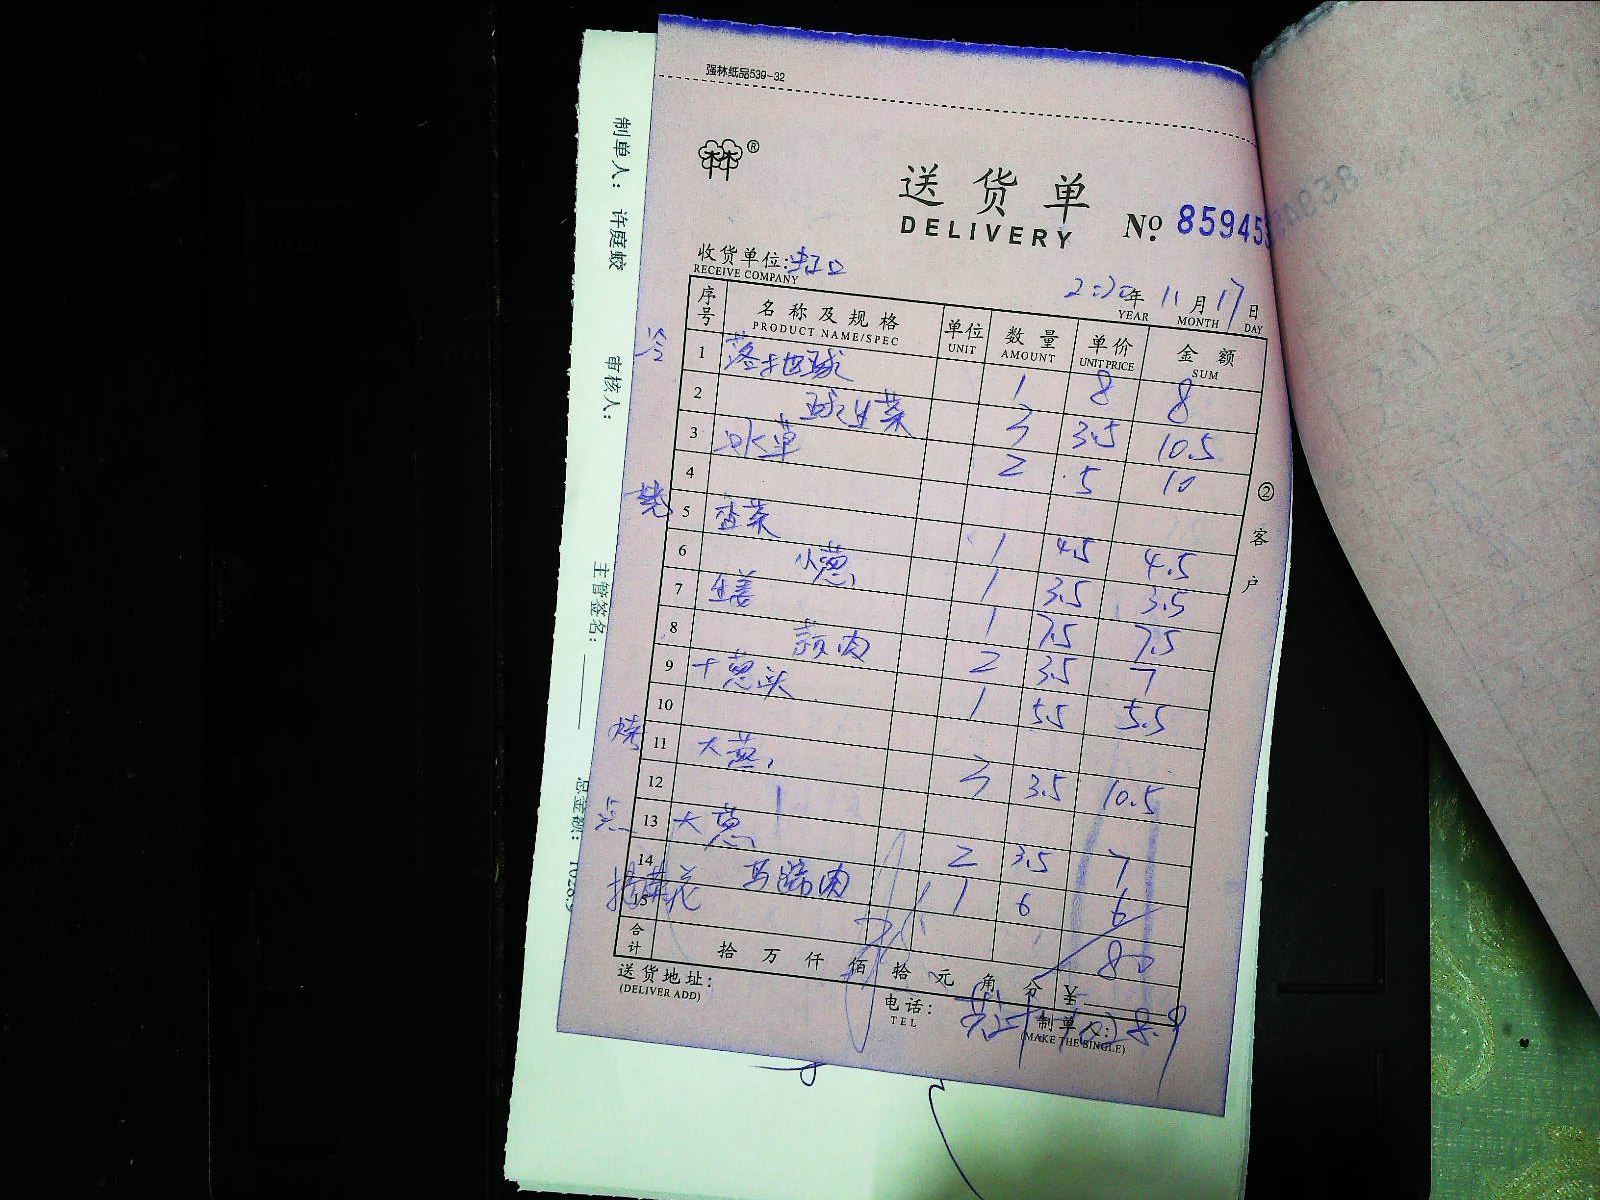 强林纸品539-32
®
送货单
DELIVERY
No. 859453
收货单位: 虹口
RECEIVE COMPANY
2020年 11月 17日
YEAR MONTH DAY
序号 名称及规格 单位 数量 单价 金额
PRODUCT NAME/SPEC UNIT AMOUNT UNIT PRICE SUM
冷 1 落地球 1 8 8
2 球生菜 3 3.5 10.5
3 冰草 2 5 10
4
烧 5 香菜 1 4.5 4.5
6 小葱 1 3.5 3.5
7 生姜 1 7.5 7.5
8 蒜肉 2 3.5 7
9 干葱头 1 5.5 5.5
10
烤 11 大葱 3 3.5 10.5
12
点 13 大葱 2 3.5 7
14 马蹄肉 1 6 6
15 80
合计 拾 万 仟 佰 拾 元 角 分 ¥
送货地址:
(DELIVER ADD)
电话:
TEL
制单:
(MAKE THE SINGLE)
②客户
制单人: 许庭蛟
审核人:
主管签名:
总金额: 1028.9